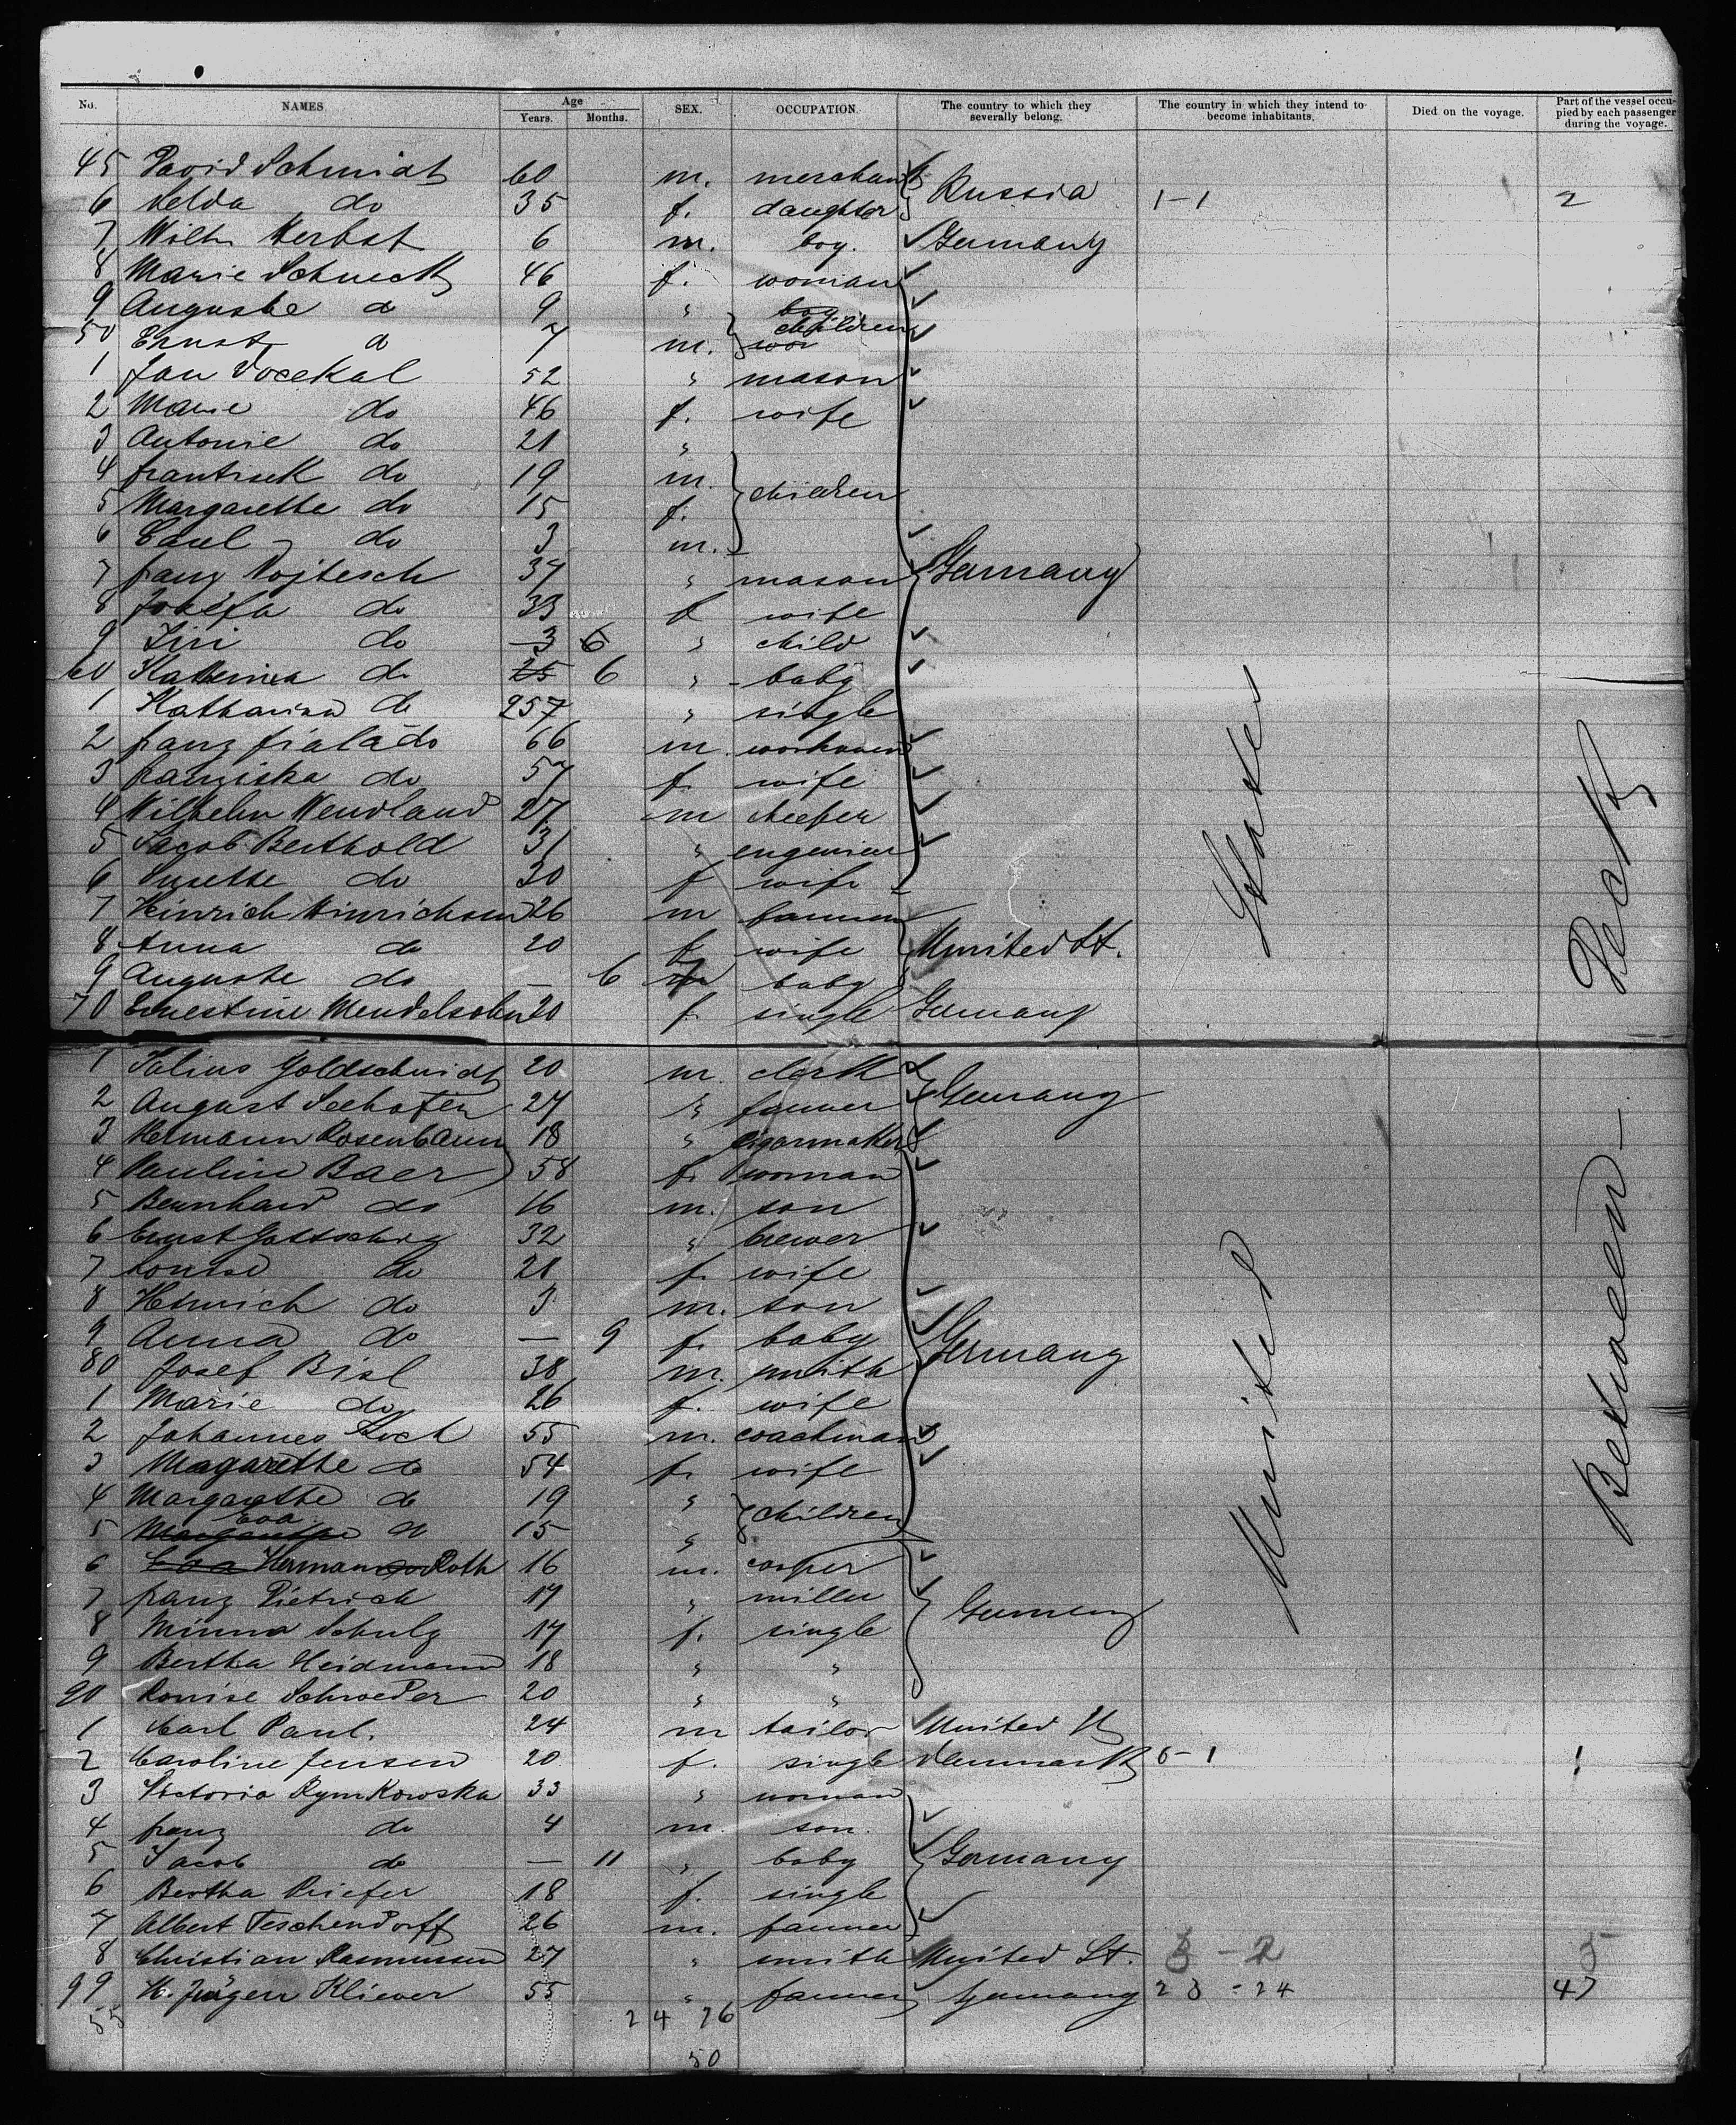 No. NAMES. Age Years. Months. SEX. OCCUPATION. The country to which they severally belong. The country in which they intend to become inhabitants. Died on the voyage. Part of the vessel occupied by each passenger during the voyage.
45 David Schmidt 60 m. merchant Russia
6 Selda do 35 f. daughter 1-1 2
7 Wilh. Herbst 6 m. boy. Germany
8 Marie Schneck 46 f. woman
9 Auguste do 9 " boy children
50 Ernst do 7 m.
1 Jan Docekal 52 " mason
2 Marie do 46 f. wife
3 Antonie do 21 "
4 frantisek do 19 m. children
5 Margarethe do 15 f.
6 Carel do 3 m.
7 franz Vojtesch 37 " mason Germany
8 Josefa do 33 f wife
9 Jiri do 3 6 " child
60 Katerina do 25 6 " baby
1 Katharina do 257 " single
2 franz fiala do 66 m workman
3 franziska do 57 f. wife
4 Wilhelm Wendland 27 m
5 Jacob Berthold 31 " engenieur
6 Susette do 30 f wife
7 Heinrich Hinrichsen 26 m farmer
8 Anna do 20 f. wife United St.
9 Auguste do — 6 f baby
70 Ernestine Mendelsohn 20 f. single Germany
1 Julius Goldschmidt 20 m. clerk Germany
2 August Seehofer 27 " farmer
3 Hermann Rosenbaum 18 " cigarmaker
4 Pauline Baer 58 f. woman
5 Bernhard do 16 m. son
6 Ernst Gottschng 32 " brewer
7 Louise do 21 f. wife
8 Heinrich do 3 m. son
9 Anna do — 9 f. baby Germany
80 Josef Bisl 38 m. smith
1 Marie do 26 f. wife
2 Johannes Koch 55 m. coachman
3 Magarethe do 54 f. wife
4 Margarethe do 19 " children
5 Margarethe Eva do 15 "
6 Eva Herman do Roth 16 m. cooper
7 franz Dietrich 17 " miller Germany
8 Minna Schulz 17 f. single
9 Bertha Heidmann 18 " "
90 Louise Schroeder 20 " "
1 Carl Paul. 24 m tailor United St
2 Caroline Jensen 20 f. single Denmark 6-1 1
3 Victoria Rymkowska 33 " woman
4 franz do 4 m. son.
5 Jacob do — 11 " baby Germany
6 Bertha Priefer 18 f. single
7 Albert Teschendorff 26 m. farmer
8 Christian Rasmussen 27 " smith United St. 3-2 5
99 H. Jürgen Kliewer 55 " farmer Germany 23-24 47
55 24 26
50
United States
Between Decks